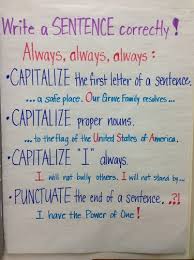 Write a SENTENCE correctly!
Always, always, always:
• CAPITALIZE the first letter of a sentence.
...a safe place. Our Grove Family resolves...
• CAPITALIZE proper nouns.
...to the flag of the United States of America.
• CAPITALIZE "I" always.
I will not bully others. I will not stand by...
• PUNCTUATE the end of a sentence. .?!
I have the Power of One!